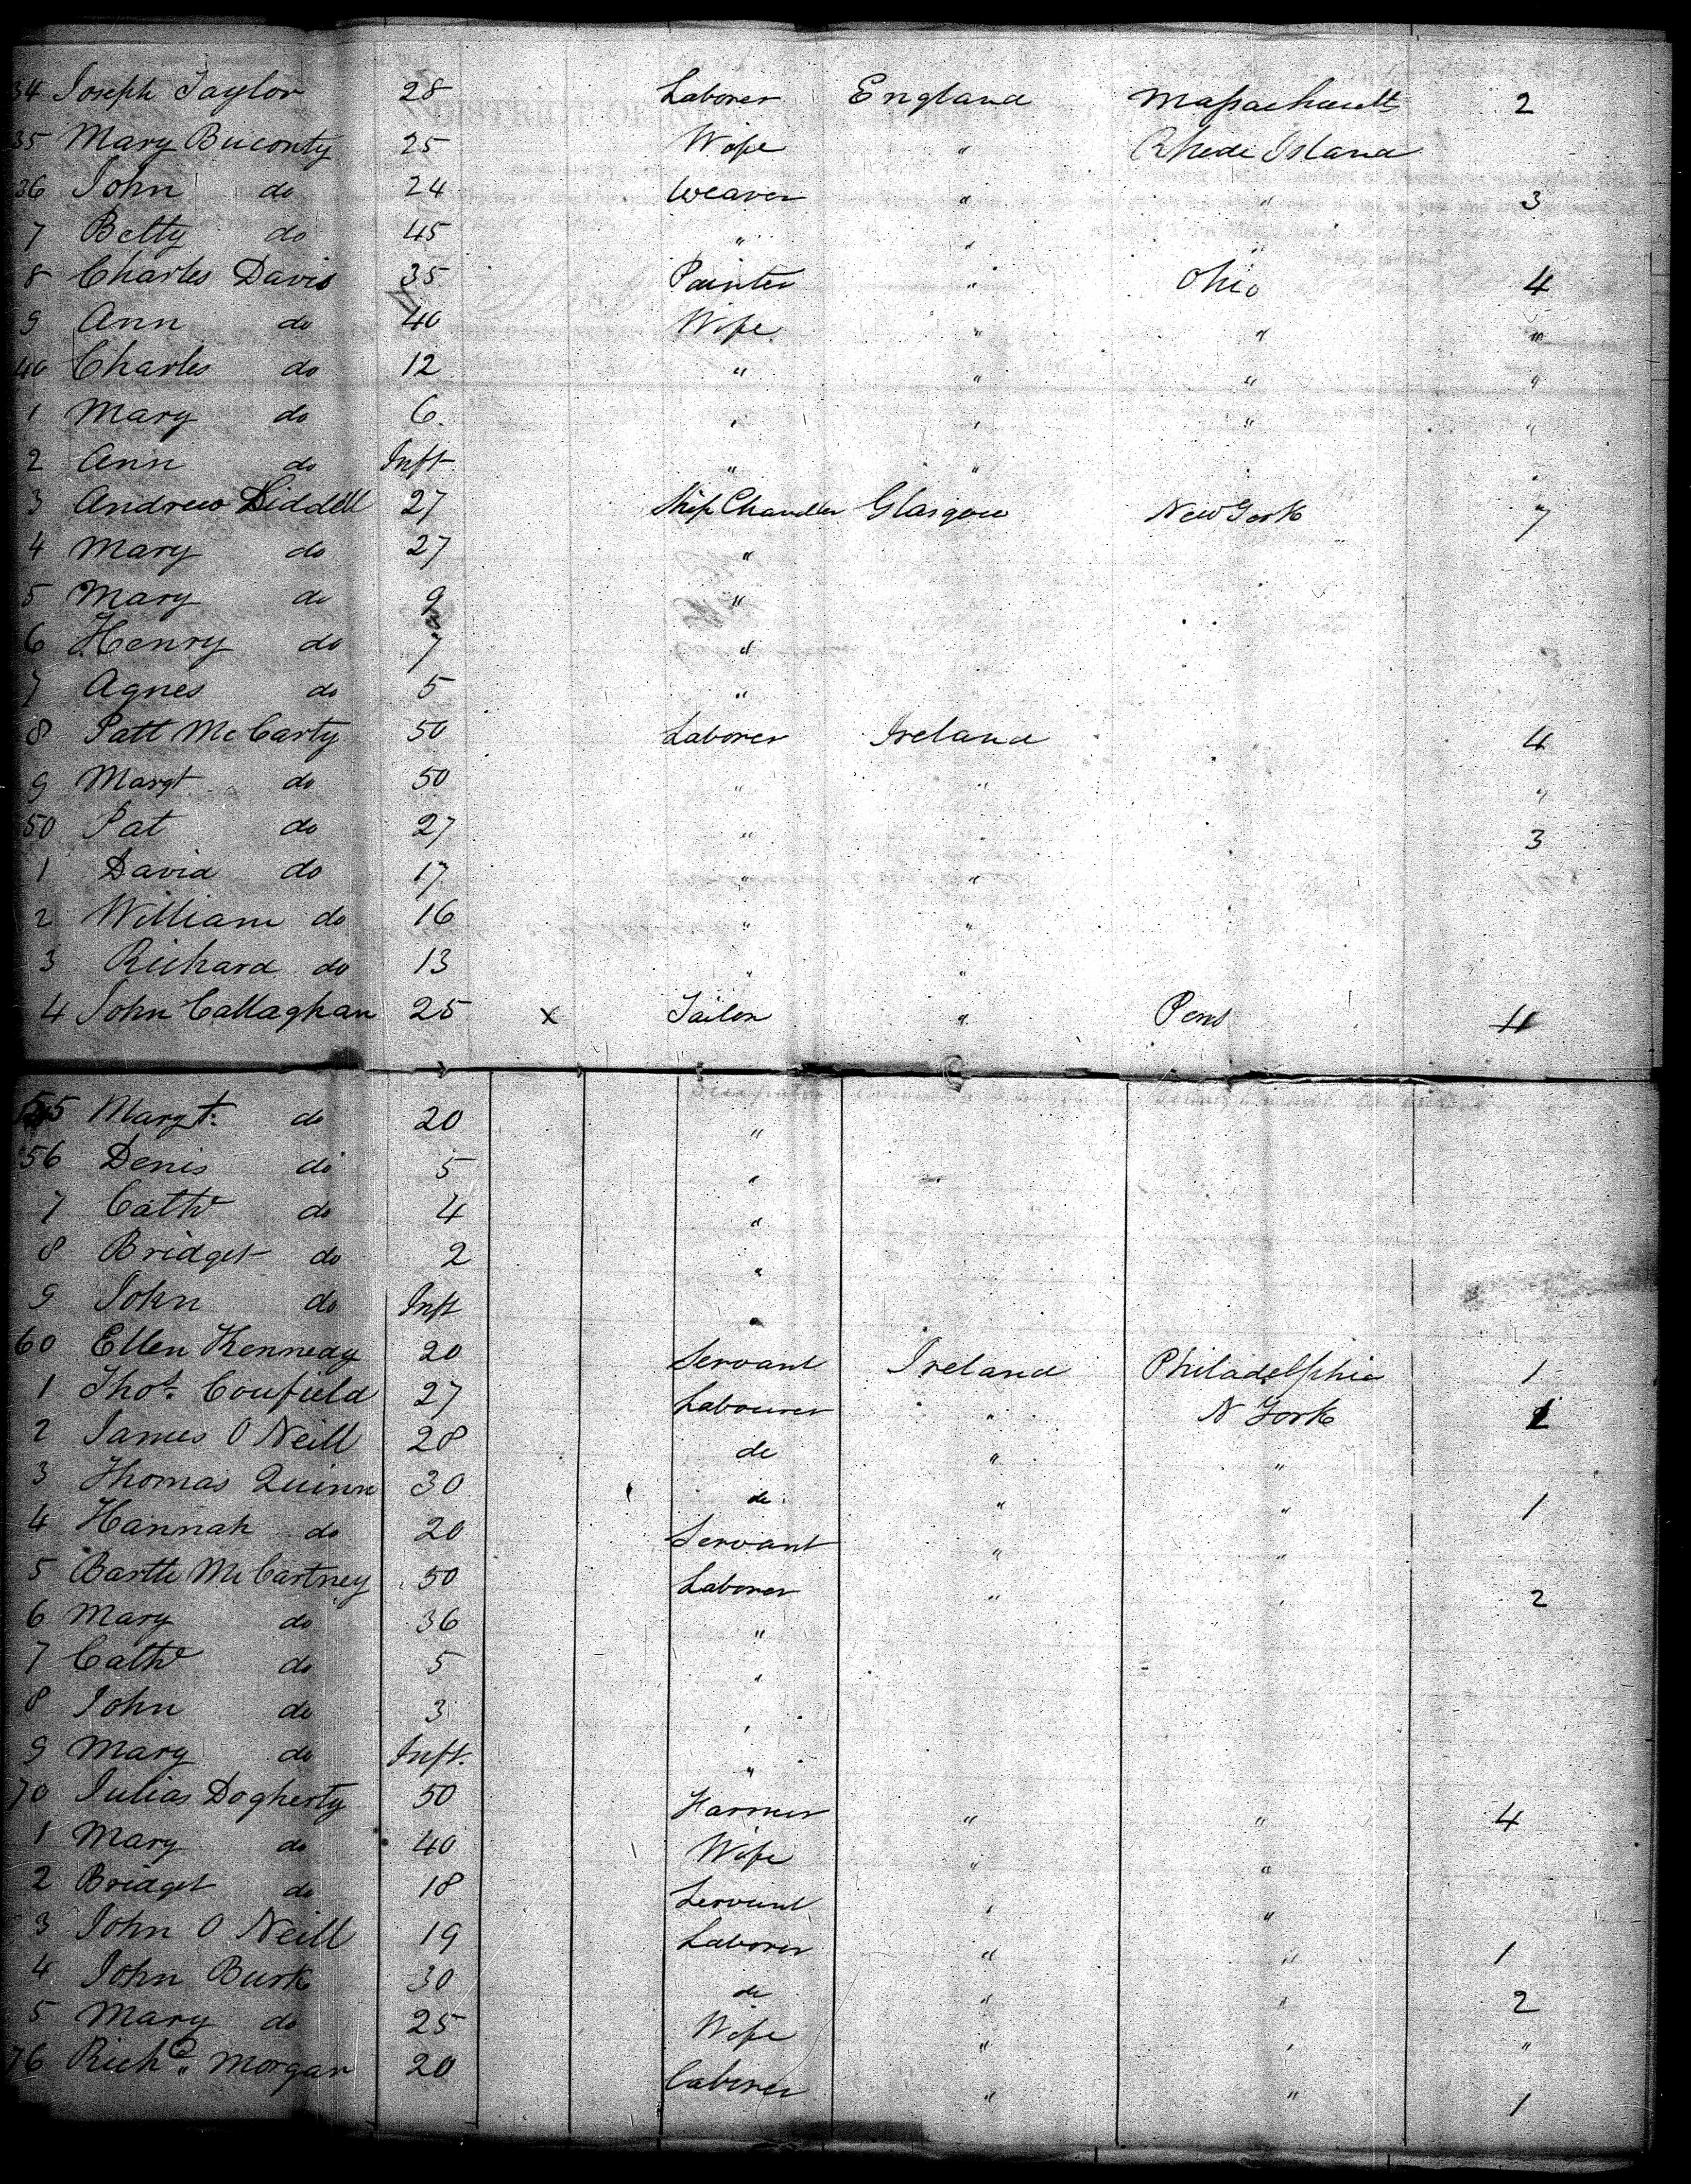 34 Joseph Taylor 28 Laborer England Massachusetts 2
35 Mary Buconty 25 Wife " Rhode Island
36 John do 24 Weaver " " 3
7 Betty do 45 " " "
8 Charles Davis 35 Painter " Ohio 4
9 Ann do 40 Wife " " "
40 Charles do 12 " " " "
1 Mary do 6 " " " "
2 Ann do Inft " " " "
3 Andrew Liddell 27 Ship Chandler Glasgow New York 7
4 Mary do 27 "
5 Mary do 9 "
6 Henry do 7 "
7 Agnes do 5 "
8 Patt McCarty 50 Laborer Ireland 4
9 Margt do 50 " " "
50 Pat do 27 " " 3
1 David do 17 " "
2 William do 16 " "
3 Richard do 13 " "
4 John Callaghan 25 x Tailor " Pens
55 Margt. do 20 "
56 Denis do 5 "
7 Cathe do 4 "
8 Bridget do 2 "
9 John do Inft "
60 Ellen Kennedy 20 Servant Ireland Philadelphia 1
1 Thos. Coufield 27 Labourer " N York 1
2 James O Neill 28 do " "
3 Thomas Quinn 30 do " " 1
4 Hannah do 20 Servant " "
5 Bartte McCartney 50 Laborer " " 2
6 Mary do 36 "
7 Cathe do 5 "
8 John do 3 "
9 Mary do Inft. "
70 Julias Dogherty 50 Farmer " " 4
1 Mary do 40 Wife " "
2 Bridget do 18 Servant " "
3 John O Neill 19 Laborer " " 1
4 John Burk 30 do " " 2
5 Mary do 25 Wife " " "
76 Richd. Morgan 20 Laborer " " 1